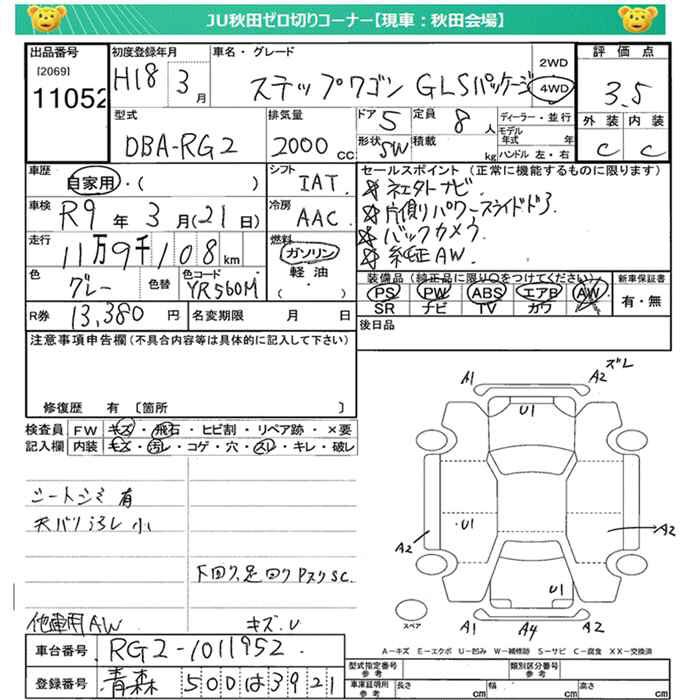 JU秋田ゼロ切りコーナー【現車：秋田会場】
出品番号 初度登録年月 車名・グレード 評価点
[2069]
11052 H18 3月 ステップワゴン GLSパッケージ 2WD 4WD 3.5
型式 排気量 ドア 5 定員 8人 ディーラー・並行 外装 内装
DBA-RG2 2000cc 形状 SW 積載 kg モデル年式 年 C C
ハンドル 左・右
車歴 自家用・( ) シフト IAT セールスポイント(正常に機能するものに限ります)
車検 R9年3月(21日) 冷房 AAC
☆社外ナビ
☆片側パワースライドドア
☆バックカメラ
☆純正AW
走行 11万9千108km 燃料 ガソリン 軽油 ・( )
色 グレー 色替 色コード YR560M
装備品(純正品に限り○をつけてください) 新車保証書
PS PW ABS エアB AW 有・無
SR ナビ TV カワ
R券 13,380円 名変期限 月 日 後日品
注意事項申告欄(不具合内容等は具体的に記入して下さい)
修復歴 有 〔箇所 〕
検査員 FW キズ・飛石・ヒビ割・リペア跡・×要
記入欄 内装 キズ・汚レ・コゲ・穴・スレ・キレ・破レ
シートシミ有
天バリ汚レ小
下回り、足回りPスリSC.
他車用AW キズ.U
A1 A2 ズレ
U1
U1
A2 A2
U1
A1 A4 A2
スペア
A－キズ E－エクボ U－凹み W－補修跡 S－サビ C－腐食 XX－交換済
車台番号 RG2-1011952
登録番号 青森 500は3921
型式指定番号 参考 類別区分番号 参考
車庫証明用 参考 長さ cm 幅 cm 高さ cm